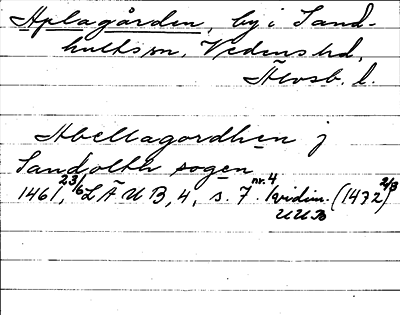 Aplagården, by i Sand-
hults sn, Vedens hd,
Älvsb. l.
Abellagordhen j
Sandolth sogen
1461, 23/6 LÄUB, 4, s. 7. nr. 4 /vidim. (1472 2/3)
UUB